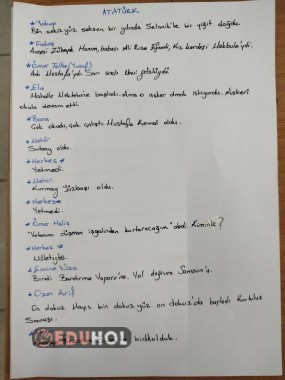 ATATÜRK
* Yakup
Bin sekiz yüz seksen bir yılında Selanik'te bir yiğit doğdu.
* Fatma
Annesi Zübeyde Hanım, babası Ali Rıza Efendi, Kız kardeşi Makbule'ydi.
* Ömer Talha (Yusuf)
Adı Mustafa'ydı. Sarı saçlı
* Ela
Mahalle Mektebine başladı. Ama o asker olmak istiyordu. Askeri
okula devam etti.
* Bora
Çok okudu, çok çalıştı Mustafa Kemal oldu.
* Nehir
Subay oldu.
* Herkes *
Yetmedi.
* Nehir
Kurmay Yüzbaşı oldu.
* Herkes *
Yetmedi.
* Ömer Halis
"Vatanımı düşman işgalinden kurtaracağım" dedi. Kiminle?
* Herkes *
Milletiyle.
* Emine
Bindi Bandırma Vapuru'na. Yol doğruca Samsun'a.
* Ozan Arif
On dokuz Mayıs bin dokuz yüz on dokuz'da başladı Kurtuluş
Savaşı.
EDUHOL
birlik olduk.